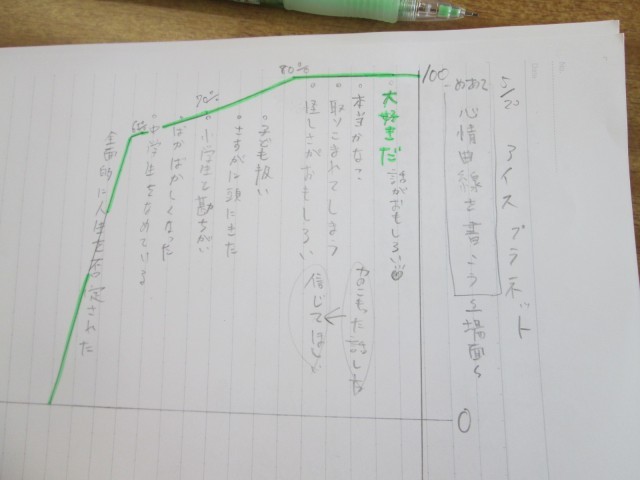 5/23 アイスプラネット
めあて 心情曲線を書こう 場面
100
0
大好きだ 話がおもしろい
本当かな?
力のこもった話し方
取りこまれてしまう
怪しさがおもしろい
信じてほしい
80%
子ども扱い
さすがに頭にきた
小学生と勘ちがい
70%
ばかばかしくなった
中学生をなめている
全面的に人生を否定された